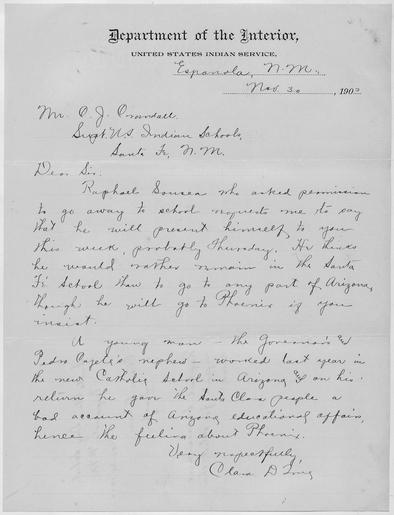 Department of the Interior,
UNITED STATES INDIAN SERVICE,
Espanola, N.M.,
Nov. 30, 190
Mr. C. J. Crandall.
Supt. U.S. Indian Schools,
Santa Fe, N.M.
Dear Sir:
Raphael who asked permission
to go away to school requests me to say
that he will present himself to you
this week, probably Thursday. He thinks
he would rather remain in the Santa
Fe School than to go to any part of Arizona,
though he will go to Phoenix if you
insist.
A young man – the Governor's &
Pedro Cajete's nephew – worked last year in
the new Catholic School in Arizona & on his
return he gave the Santa Clara people a
bad account of Arizona educational affairs
hence the feeling about Phoenix.
Very respectfully,
Clara D. True